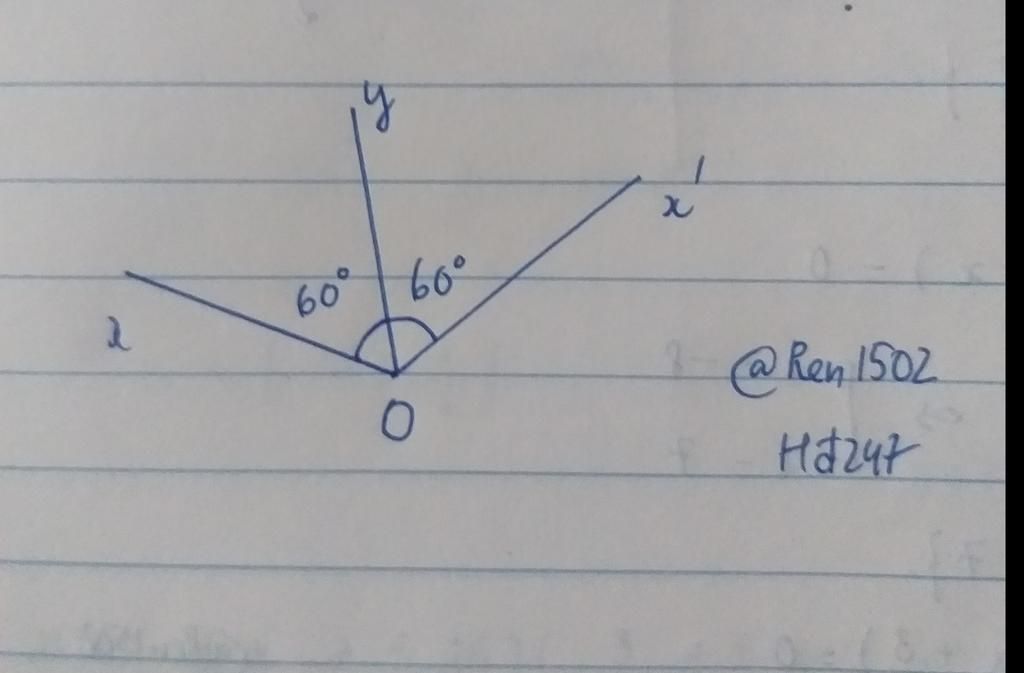 y
x'
60° 60°
x
O
@Ren1502
Hđ247